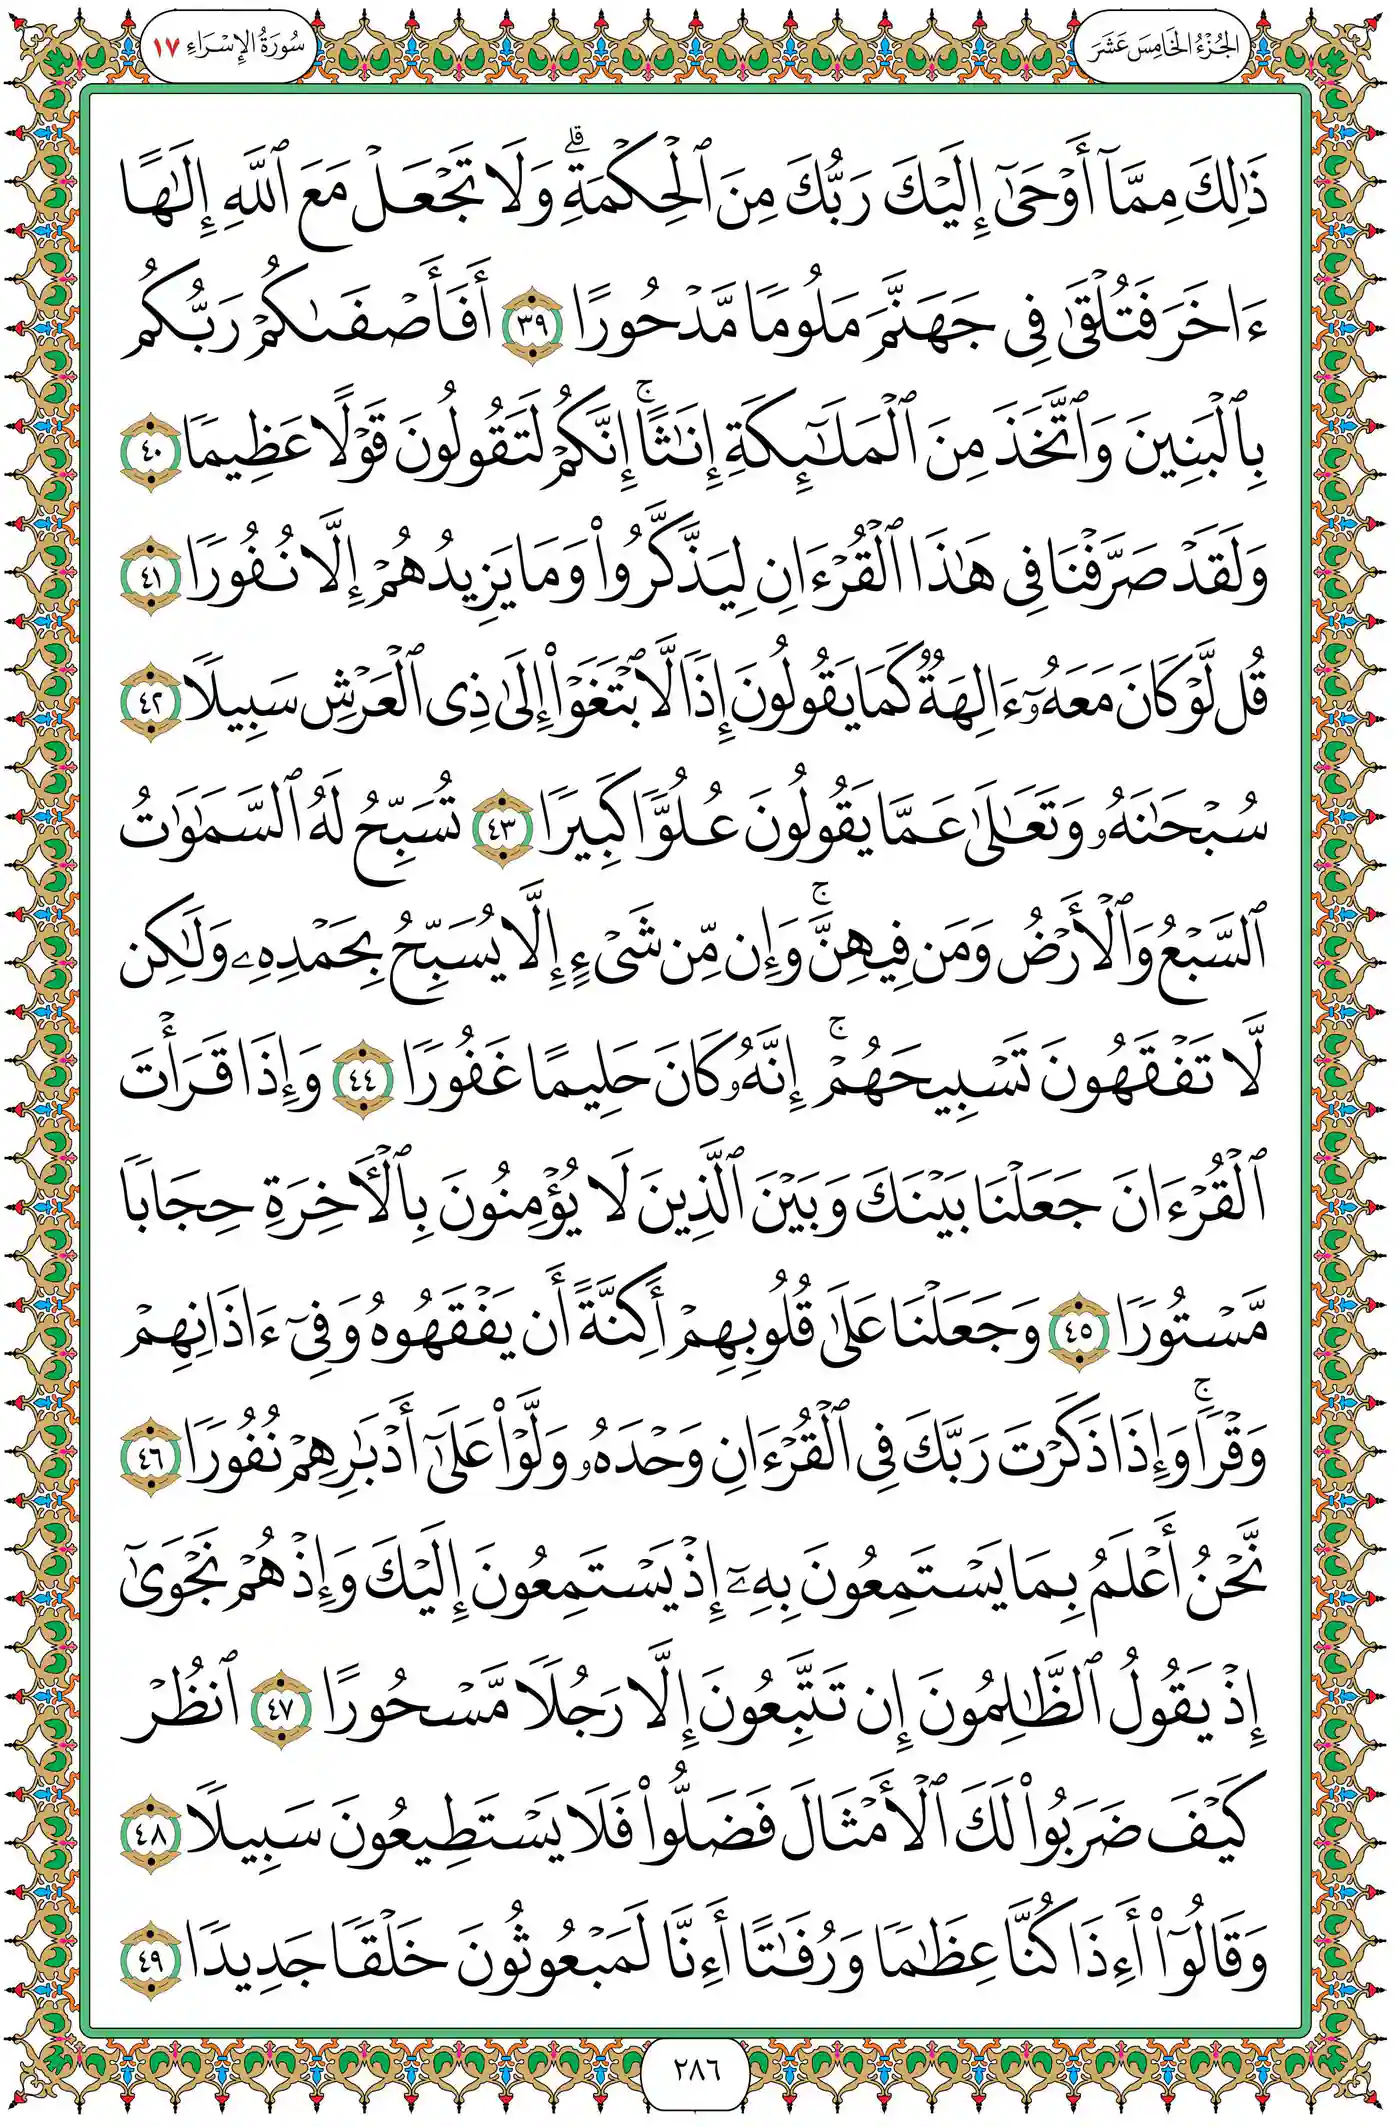 الجُزْءُ الخَامِسَ عَشَرَ
سُورَةُ الإِسْرَاءِ ١٧
ذَٰلِكَ مِمَّآ أَوْحَىٰٓ إِلَيْكَ رَبُّكَ مِنَ ٱلْحِكْمَةِۗ وَلَا تَجْعَلْ مَعَ ٱللَّهِ إِلَٰهًا
ءَاخَرَ فَتُلْقَىٰ فِى جَهَنَّمَ مَلُومًا مَّدْحُورًا ٣٩ أَفَأَصْفَىٰكُمْ رَبُّكُم
بِٱلْبَنِينَ وَٱتَّخَذَ مِنَ ٱلْمَلَٰٓئِكَةِ إِنَٰثًاۚ إِنَّكُمْ لَتَقُولُونَ قَوْلًا عَظِيمًا ٤٠
وَلَقَدْ صَرَّفْنَا فِى هَٰذَا ٱلْقُرْءَانِ لِيَذَّكَّرُوا۟ وَمَا يَزِيدُهُمْ إِلَّا نُفُورًا ٤١
قُل لَّوْ كَانَ مَعَهُۥٓ ءَالِهَةٌ كَمَا يَقُولُونَ إِذًا لَّٱبْتَغَوْا۟ إِلَىٰ ذِى ٱلْعَرْشِ سَبِيلًا ٤٢
سُبْحَٰنَهُۥ وَتَعَٰلَىٰ عَمَّا يَقُولُونَ عُلُوًّا كَبِيرًا ٤٣ تُسَبِّحُ لَهُ ٱلسَّمَٰوَٰتُ
ٱلسَّبْعُ وَٱلْأَرْضُ وَمَن فِيهِنَّۚ وَإِن مِّن شَىْءٍ إِلَّا يُسَبِّحُ بِحَمْدِهِۦ وَلَٰكِن
لَّا تَفْقَهُونَ تَسْبِيحَهُمْۚ إِنَّهُۥ كَانَ حَلِيمًا غَفُورًا ٤٤ وَإِذَا قَرَأْتَ
ٱلْقُرْءَانَ جَعَلْنَا بَيْنَكَ وَبَيْنَ ٱلَّذِينَ لَا يُؤْمِنُونَ بِٱلْءَاخِرَةِ حِجَابًا
مَّسْتُورًا ٤٥ وَجَعَلْنَا عَلَىٰ قُلُوبِهِمْ أَكِنَّةً أَن يَفْقَهُوهُ وَفِىٓ ءَاذَانِهِمْ
وَقْرًاۚ وَإِذَا ذَكَرْتَ رَبَّكَ فِى ٱلْقُرْءَانِ وَحْدَهُۥ وَلَّوْا۟ عَلَىٰٓ أَدْبَٰرِهِمْ نُفُورًا ٤٦
نَّحْنُ أَعْلَمُ بِمَا يَسْتَمِعُونَ بِهِۦٓ إِذْ يَسْتَمِعُونَ إِلَيْكَ وَإِذْ هُمْ نَجْوَىٰٓ
إِذْ يَقُولُ ٱلظَّٰلِمُونَ إِن تَتَّبِعُونَ إِلَّا رَجُلًا مَّسْحُورًا ٤٧ ٱنظُرْ
كَيْفَ ضَرَبُوا۟ لَكَ ٱلْأَمْثَالَ فَضَلُّوا۟ فَلَا يَسْتَطِيعُونَ سَبِيلًا ٤٨
وَقَالُوٓا۟ أَءِذَا كُنَّا عِظَٰمًا وَرُفَٰتًا أَءِنَّا لَمَبْعُوثُونَ خَلْقًا جَدِيدًا ٤٩
٢٨٦